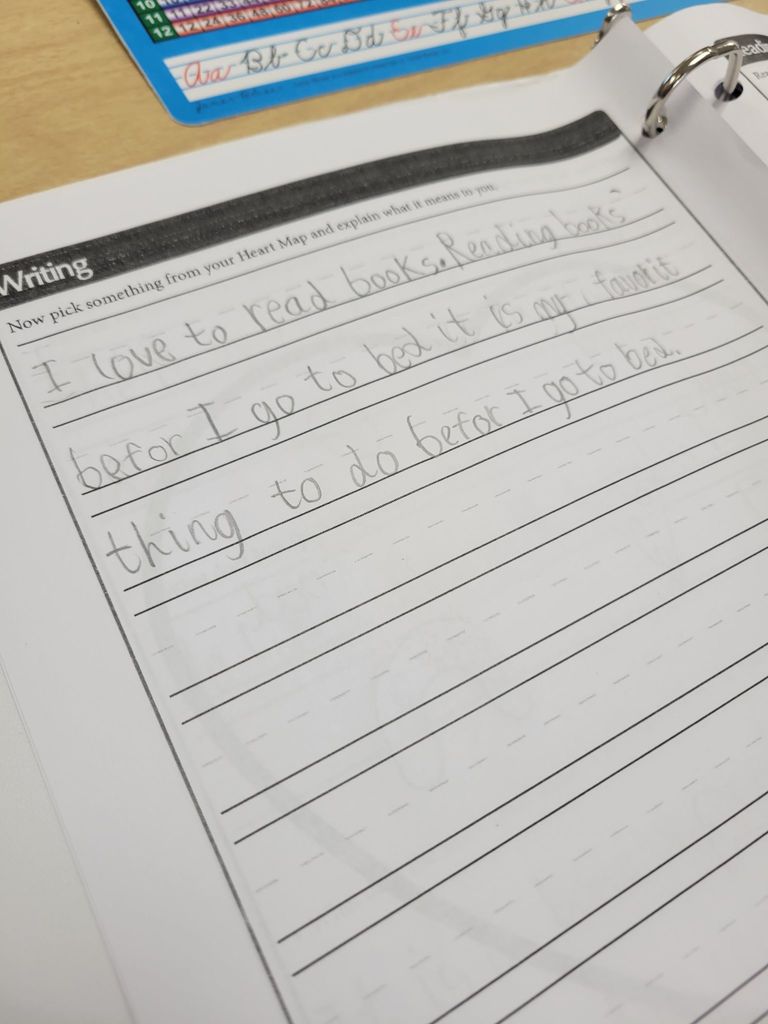 10
11 11 22 33
12 12 24 36 48 60 72
Aa Bb Cc Dd Ee Ff Gg Hh
Writing
Now pick something from your Heart Map and explain what it means to you.
I love to read books. Reading books
befor I go to bed it is my favorit
thing to do befor I go to bed.